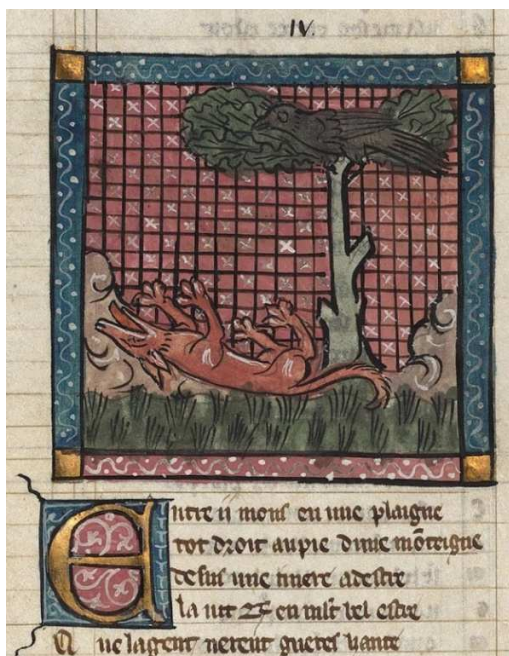 IV
Entre ii mons en une plaigne
tot droit au pie dune mõteigne
desus une riuiere a destre
la uit 7 en mlt bel estre
Q ue la gent nereut gueres hante